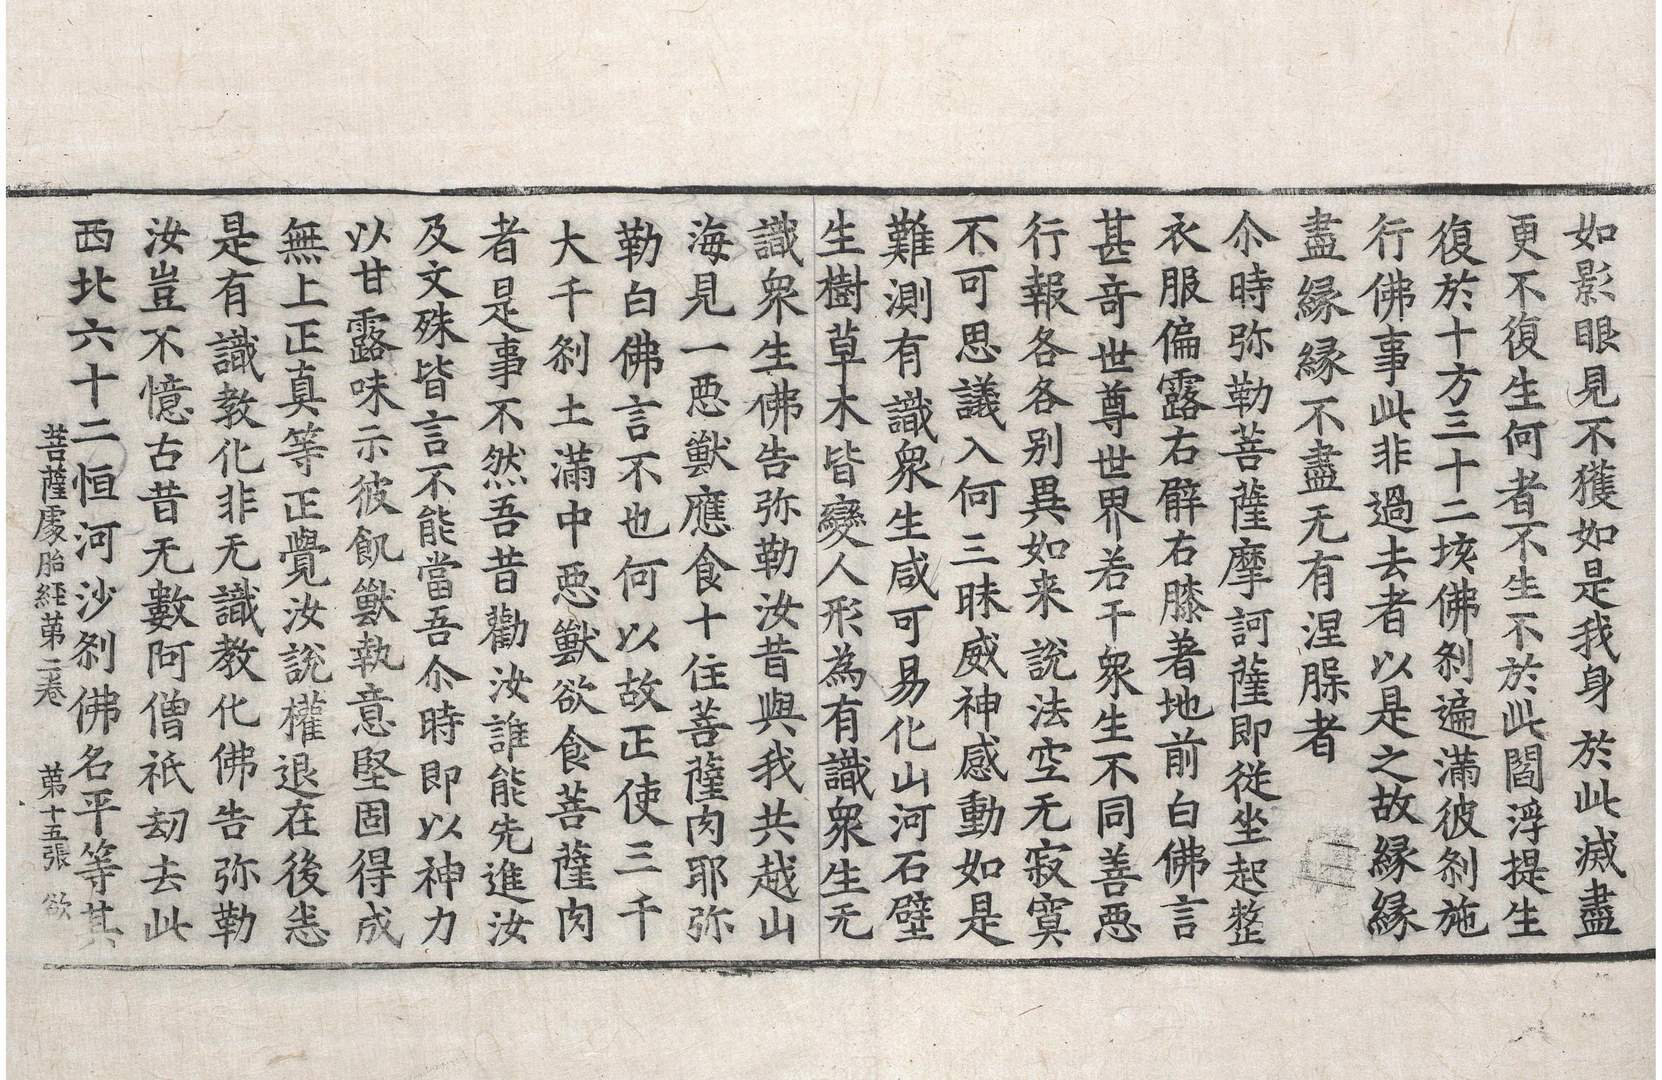 如影眼見不獲如是我身於此滅盡
更不復生何者不生不於此閻浮提生
復於十方三十二垓佛刹遍滿彼刹施
行佛事此非過去者以是之故緣緣
盡緣緣不盡无有涅槃者
尒時弥勒菩薩摩訶薩即從坐起整
衣服偏露右臂右膝著地前白佛言
甚奇世尊世界若干眾生不同善惡
行報各各別異如来說法空无寂寞
不可思議入何三昧威神感動如是
難測有識眾生咸可易化山河石壁
生樹草木皆變人形為有識眾生无
識眾生佛告弥勒汝昔與我共越山
海見一惡獸應食十住菩薩肉耶弥
勒白佛言不也何以故正使三千
大千刹土滿中惡獸欲食菩薩肉
者是事不然吾昔勸汝誰能先進汝
及文殊皆言不能當吾尒時即以神力
以甘露味示彼飢獸執意堅固得成
無上正真等正覺汝說權退在後恙
是有識教化非无識教化佛告弥勒
汝豈不憶古昔无數阿僧祇劫去此
西北六十二恒河沙刹佛名平等其
菩薩處胎經第二卷 第十五張 欲